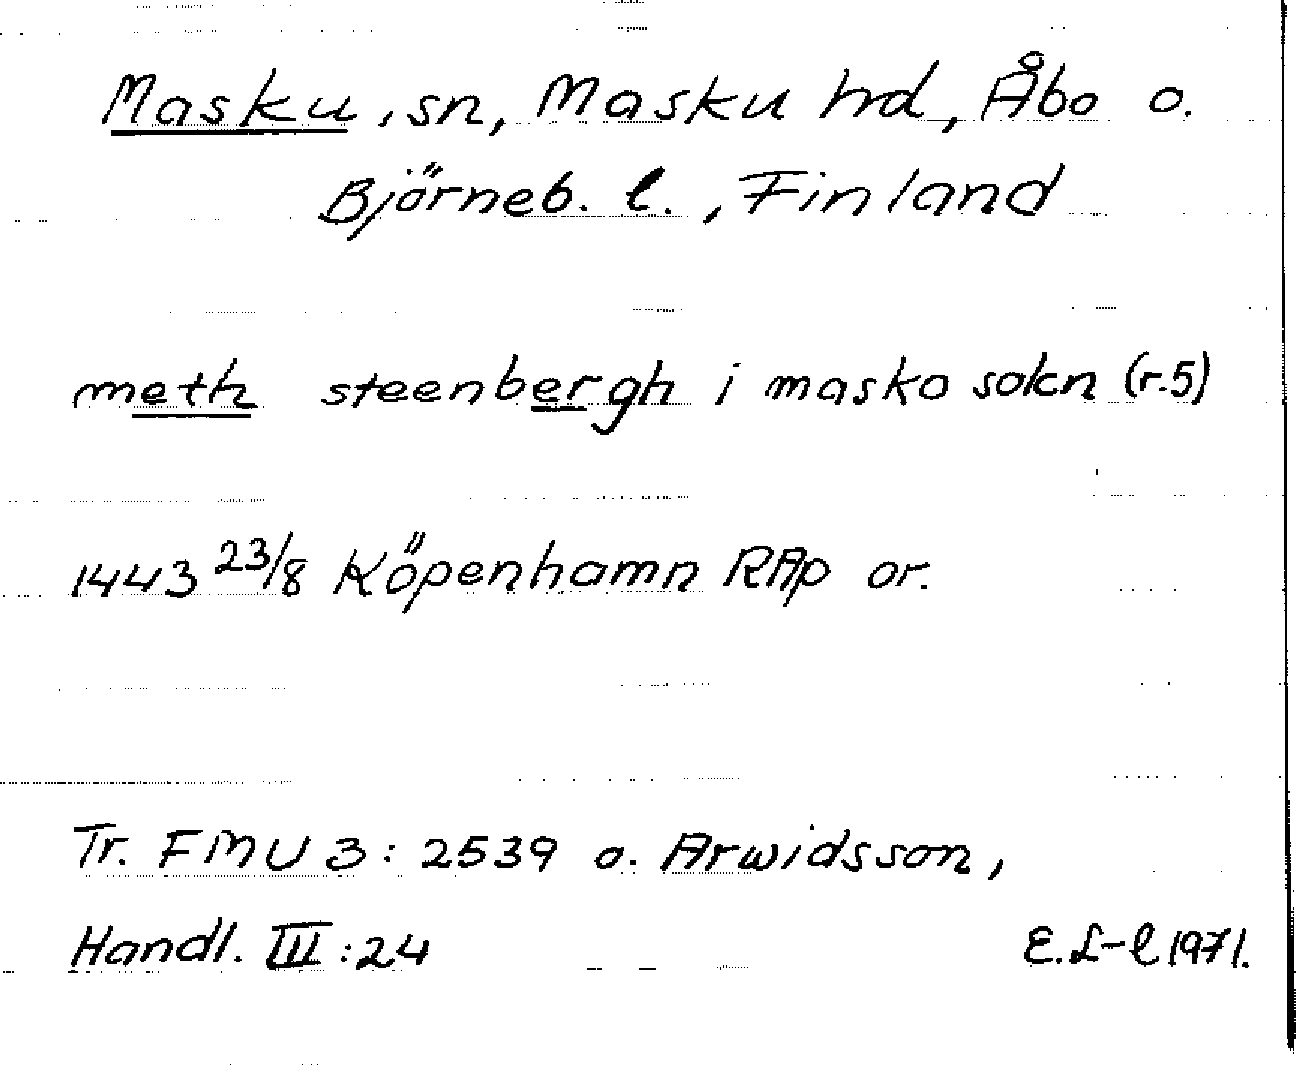 Masku, sn, Masku hd, Åbo o.
Björneb. l., Finland
meth steenbergh i masko sokn (r.5)
1443 23/8 Köpenhamn RAp or.
Tr. FMU 3: 2539 o. Arwidsson,
Handl. III:24
E. L-l 1971.